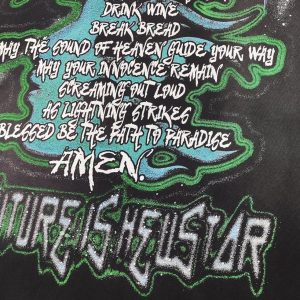 DRINK WINE
BREAK BREAD
MAY THE SOUND OF HEAVEN GUIDE YOUR WAY
MAY YOUR INNOCENCE REMAIN
SCREAMING OUT LOUD
AS LIGHTNING STRIKES
BLESSED BE THE PATH TO PARADISE
AMEN.
UTURE IS HELLSTAR